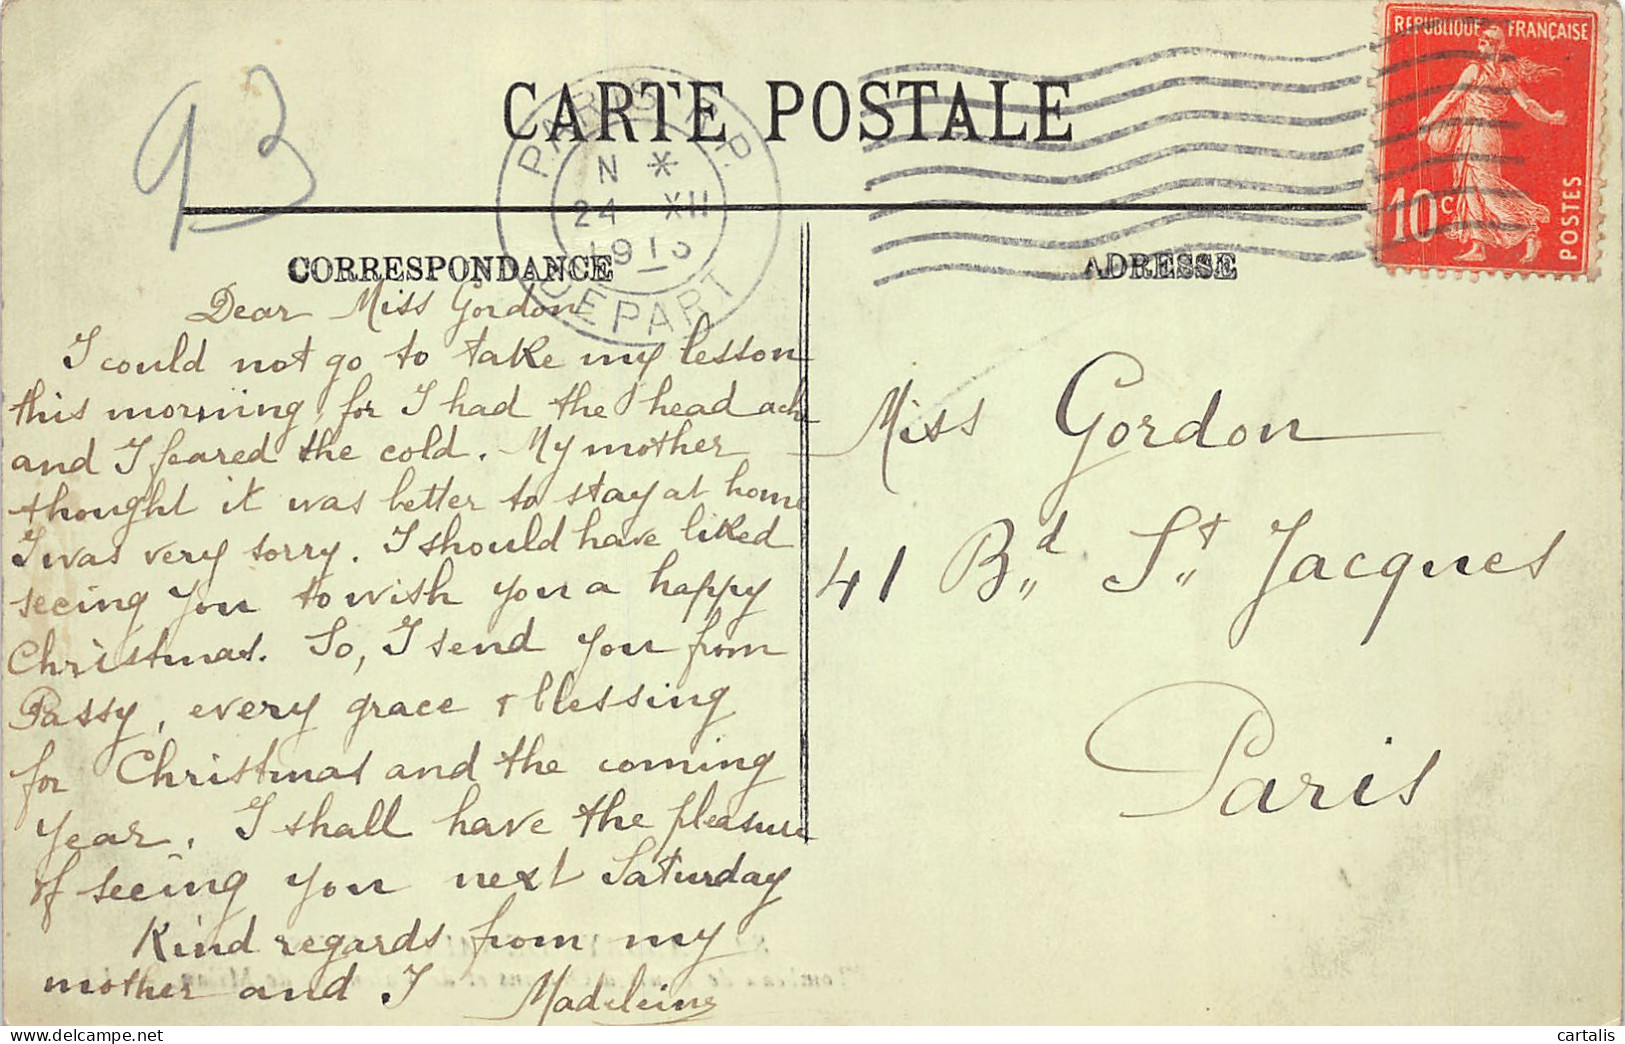 93
CARTE POSTALE
REPUBLIQUE FRANÇAISE
10 c
POSTES
PARIS
N *
24 XII
DEPART
CORRESPONDANCE
Dear Miss Gordon
I could not go to take my lesson
this morning, for I had the head ache
and I feared the cold. My mother
thought it was better to stay at home
I was very sorry. I should have liked
seeing you to wish you a happy
Christmas. So, I send you from
Passy, every grace & blessing
for Christmas and the coming
year. I shall have the pleasure
of seeing you next Saturday
Kind regards from my
mother and I Madeleine
ADRESSE
Miss Gordon
41 Bd St Jacques
Paris
cartalis